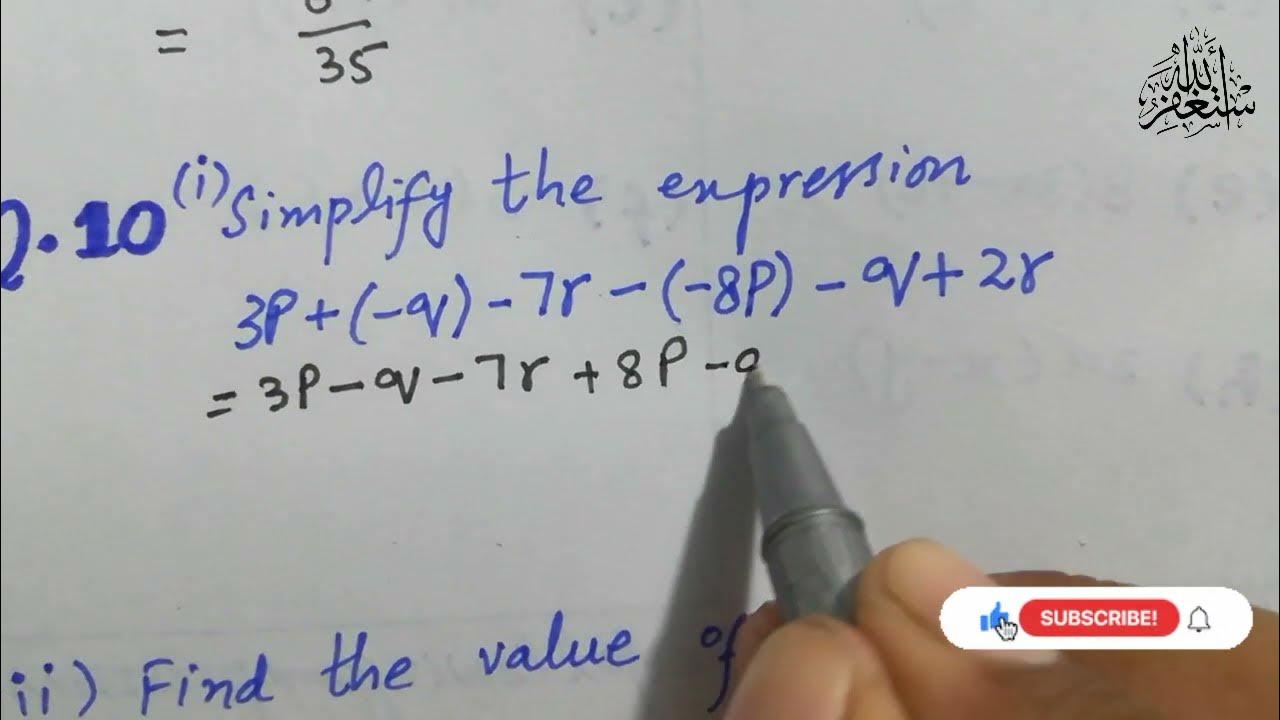 =
35
Q.10 (i) Simplify the expression
3p + (-q) - 7r - (-8p) - q + 2r
= 3p - q - 7r + 8p -
ii) Find the value of
أستغفر الله
SUBSCRIBE!